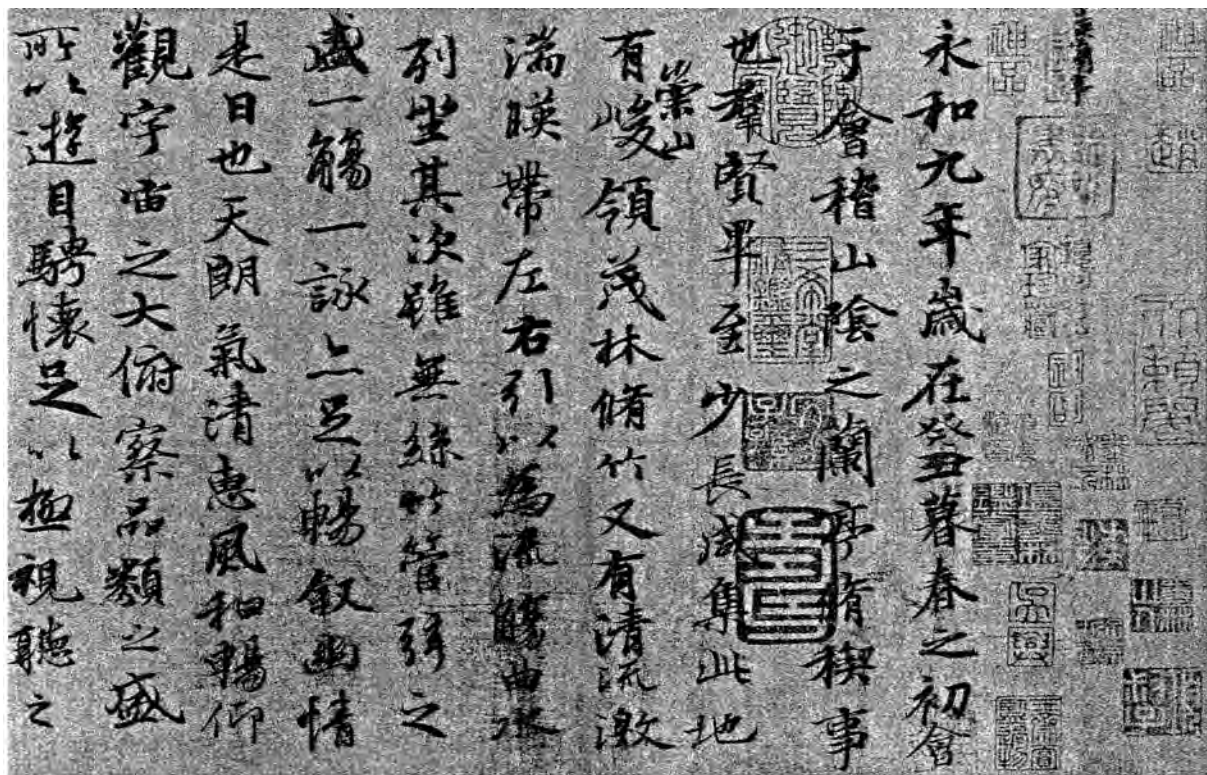 神品
趙
神品
吳興
永和九年歲在癸丑暮春之初會
于會稽山陰之蘭亭脩稧事
三希堂精鑒璽
也羣賢畢至少長咸集此地
有崇山峻領茂林脩竹又有清流激
湍暎帶左右引以為流觴曲水
列坐其次雖無絲竹管弦之
盛一觴一詠亦足以暢敘幽情
是日也天朗氣清惠風和暢仰
觀宇宙之大俯察品類之盛
所以遊目騁懷足以極視聽之